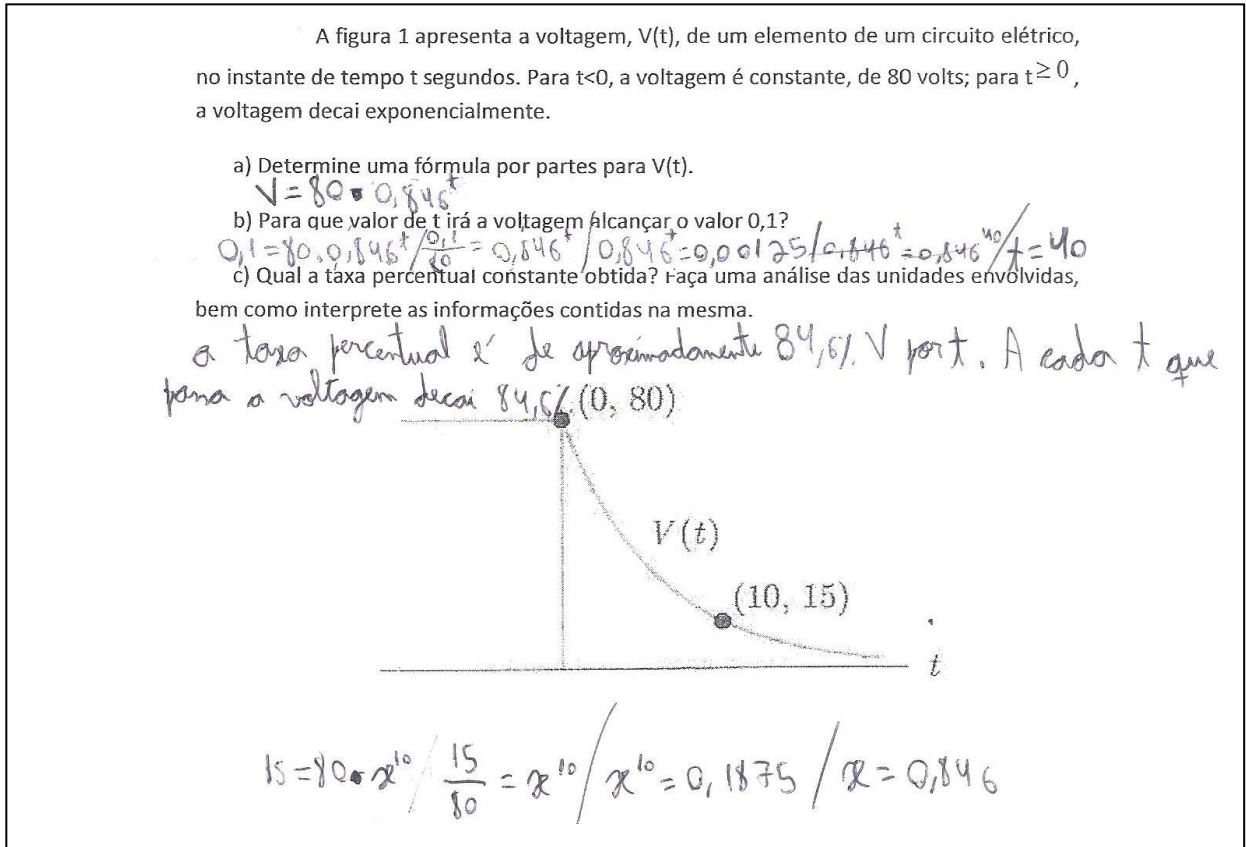 A figura 1 apresenta a voltagem, V(t), de um elemento de um circuito elétrico,
no instante de tempo t segundos. Para t<0, a voltagem é constante, de 80 volts; para t ≥ 0 ,
a voltagem decai exponencialmente.
a) Determine uma fórmula por partes para V(t).
V = 80 . 0,846^t
b) Para que valor de t irá a voltagem alcançar o valor 0,1?
0,1 = 80 . 0,846^t / 0,1/80 = 0,846^t / 0,846^t = 0,00125 / 0,846^t = 0,846^40 / t = 40
c) Qual a taxa percentual constante obtida? Faça uma análise das unidades envolvidas,
bem como interprete as informações contidas na mesma.
a taxa percentual é de aproximadamente 84,6% V por t. A cada t que
passa a voltagem decai 84,6%.
(0, 80)
V(t)
(10, 15)
t
15 = 80 . x^10 / 15/80 = x^10 / x^10 = 0,1875 / x = 0,846